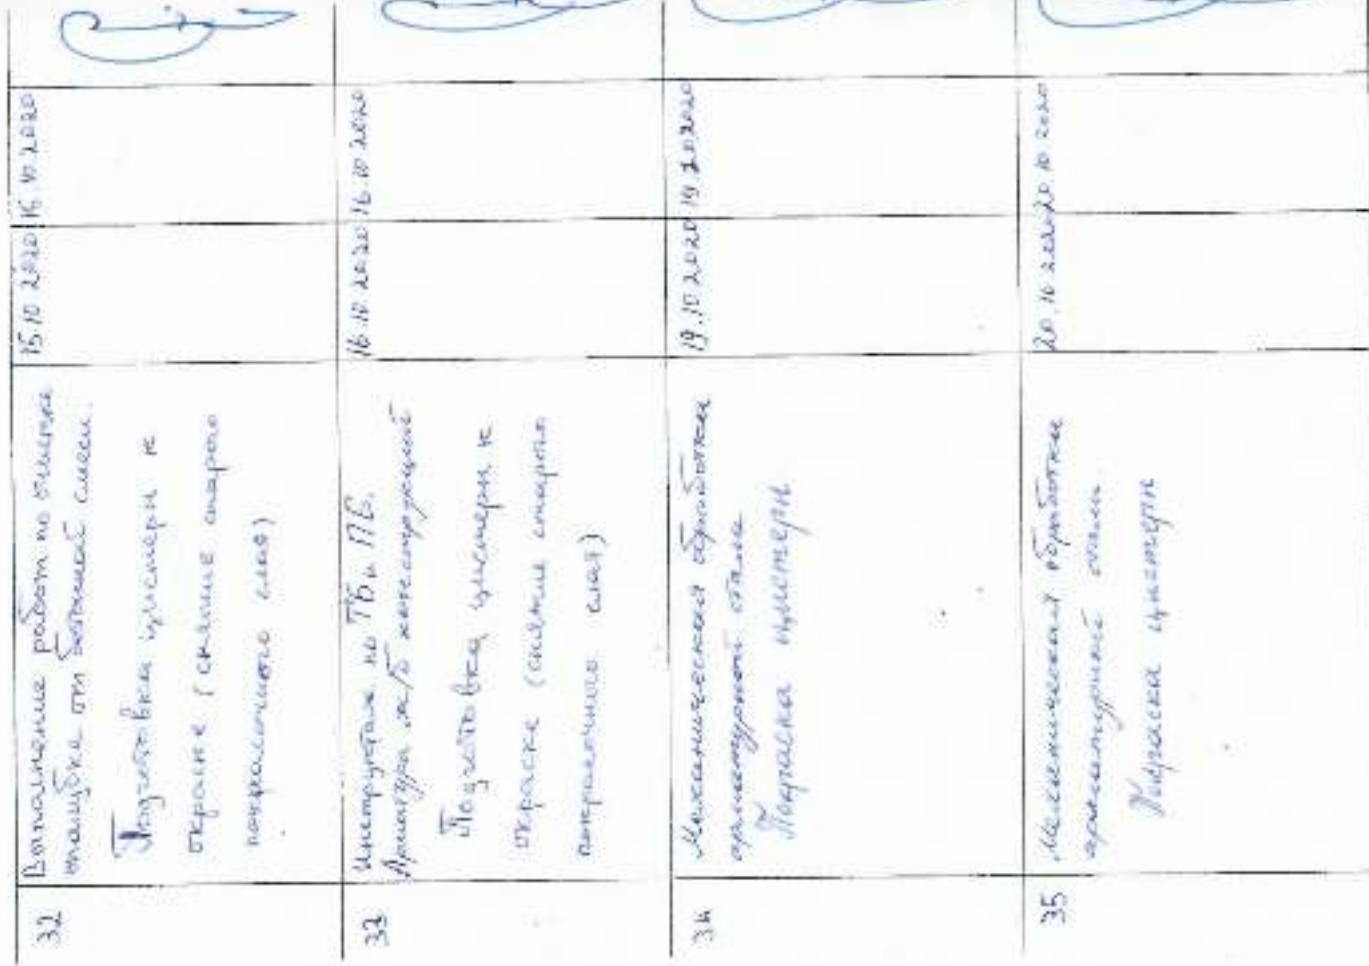 32
Выполнение работ по очистке
опалубки от бетонной смеси.
Подготовка цистерн к
окраске (снятие старого
покрасочного слоя)
15.10 2020
16.10.2020
33
Инструктаж по ТБ и ПБ.
Арматура ж/б конструкций
Подготовка цистерн к
окраске (снятие старого
покрасочного слоя)
16.10.2020
16.10.2020
34
Механическая обработка
арматурной стали
Покраска цистерн
19.10.2020
19.10.2020
35
Механическая обработка
арматурной стали
Покраска цистерн
20.10.2020
20.10.2020